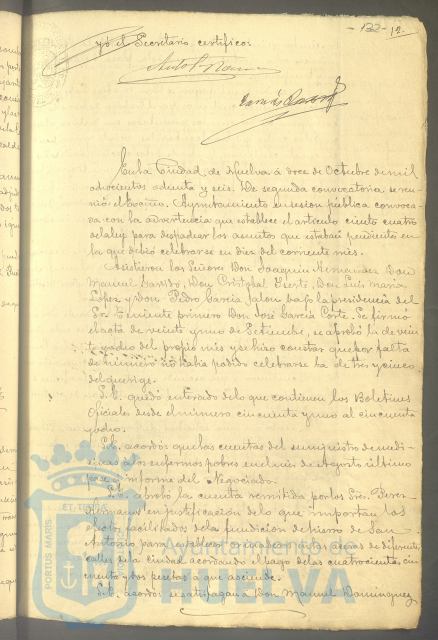 - 132 - 12.
yó el Secretario certifico:
En la Ciudad de Huelva á doce de Octubre de mil
ochocientos ochenta y seis. De segunda convocatoria se reu-
nió el Excmo. Ayuntamiento en sesion pública convoca-
da con la advertencia que establece el artículo ciento cuatro
de la ley para despachar los asuntos que estaban pendientes en
la que debió celebrarse en diez del corriente mes.
Asistieron los Señores Don Joaquin Hernandez Don
Manuel Garrido, Don Cristóbal Don Luis Maria
Lopez y Don Pedro Garcia Jalon bajo la presidencia del
Sr. Teniente primero Don José García Corte. Se firmó
el acta de veinte y uno de Setiembre, se aprobó la de vein-
te y ocho del propio mes y se hizo constar que por falta
de número no habia podido celebrarse la de tres y cinco
del que rige.
S.E. quedó enterado de lo que contienen los Boletines
Oficiales desde el número cincuenta y uno al cincuenta
y ocho.
S.E. acordó que las cuentas del suministro de medi-
cinas á los enfermos pobres en el mes de Agosto último
pase á informe del Negociado.
S.E. aprobó la cuenta remitida por los Sres. Perez
Hermanos en justificación de lo que importan los
efectos facilitados de la fundicion de hierro de San
Antonio para establecer en diferentes
calles de la ciudad acordando el pago de las cuatrocientas cin-
cuenta y dos pesetas á que asciende.
S.E. acordó se satisfagan á Don Manuel Dominguez
PORTUS MARIS
ET TE
Ayuntamiento de
HUELVA